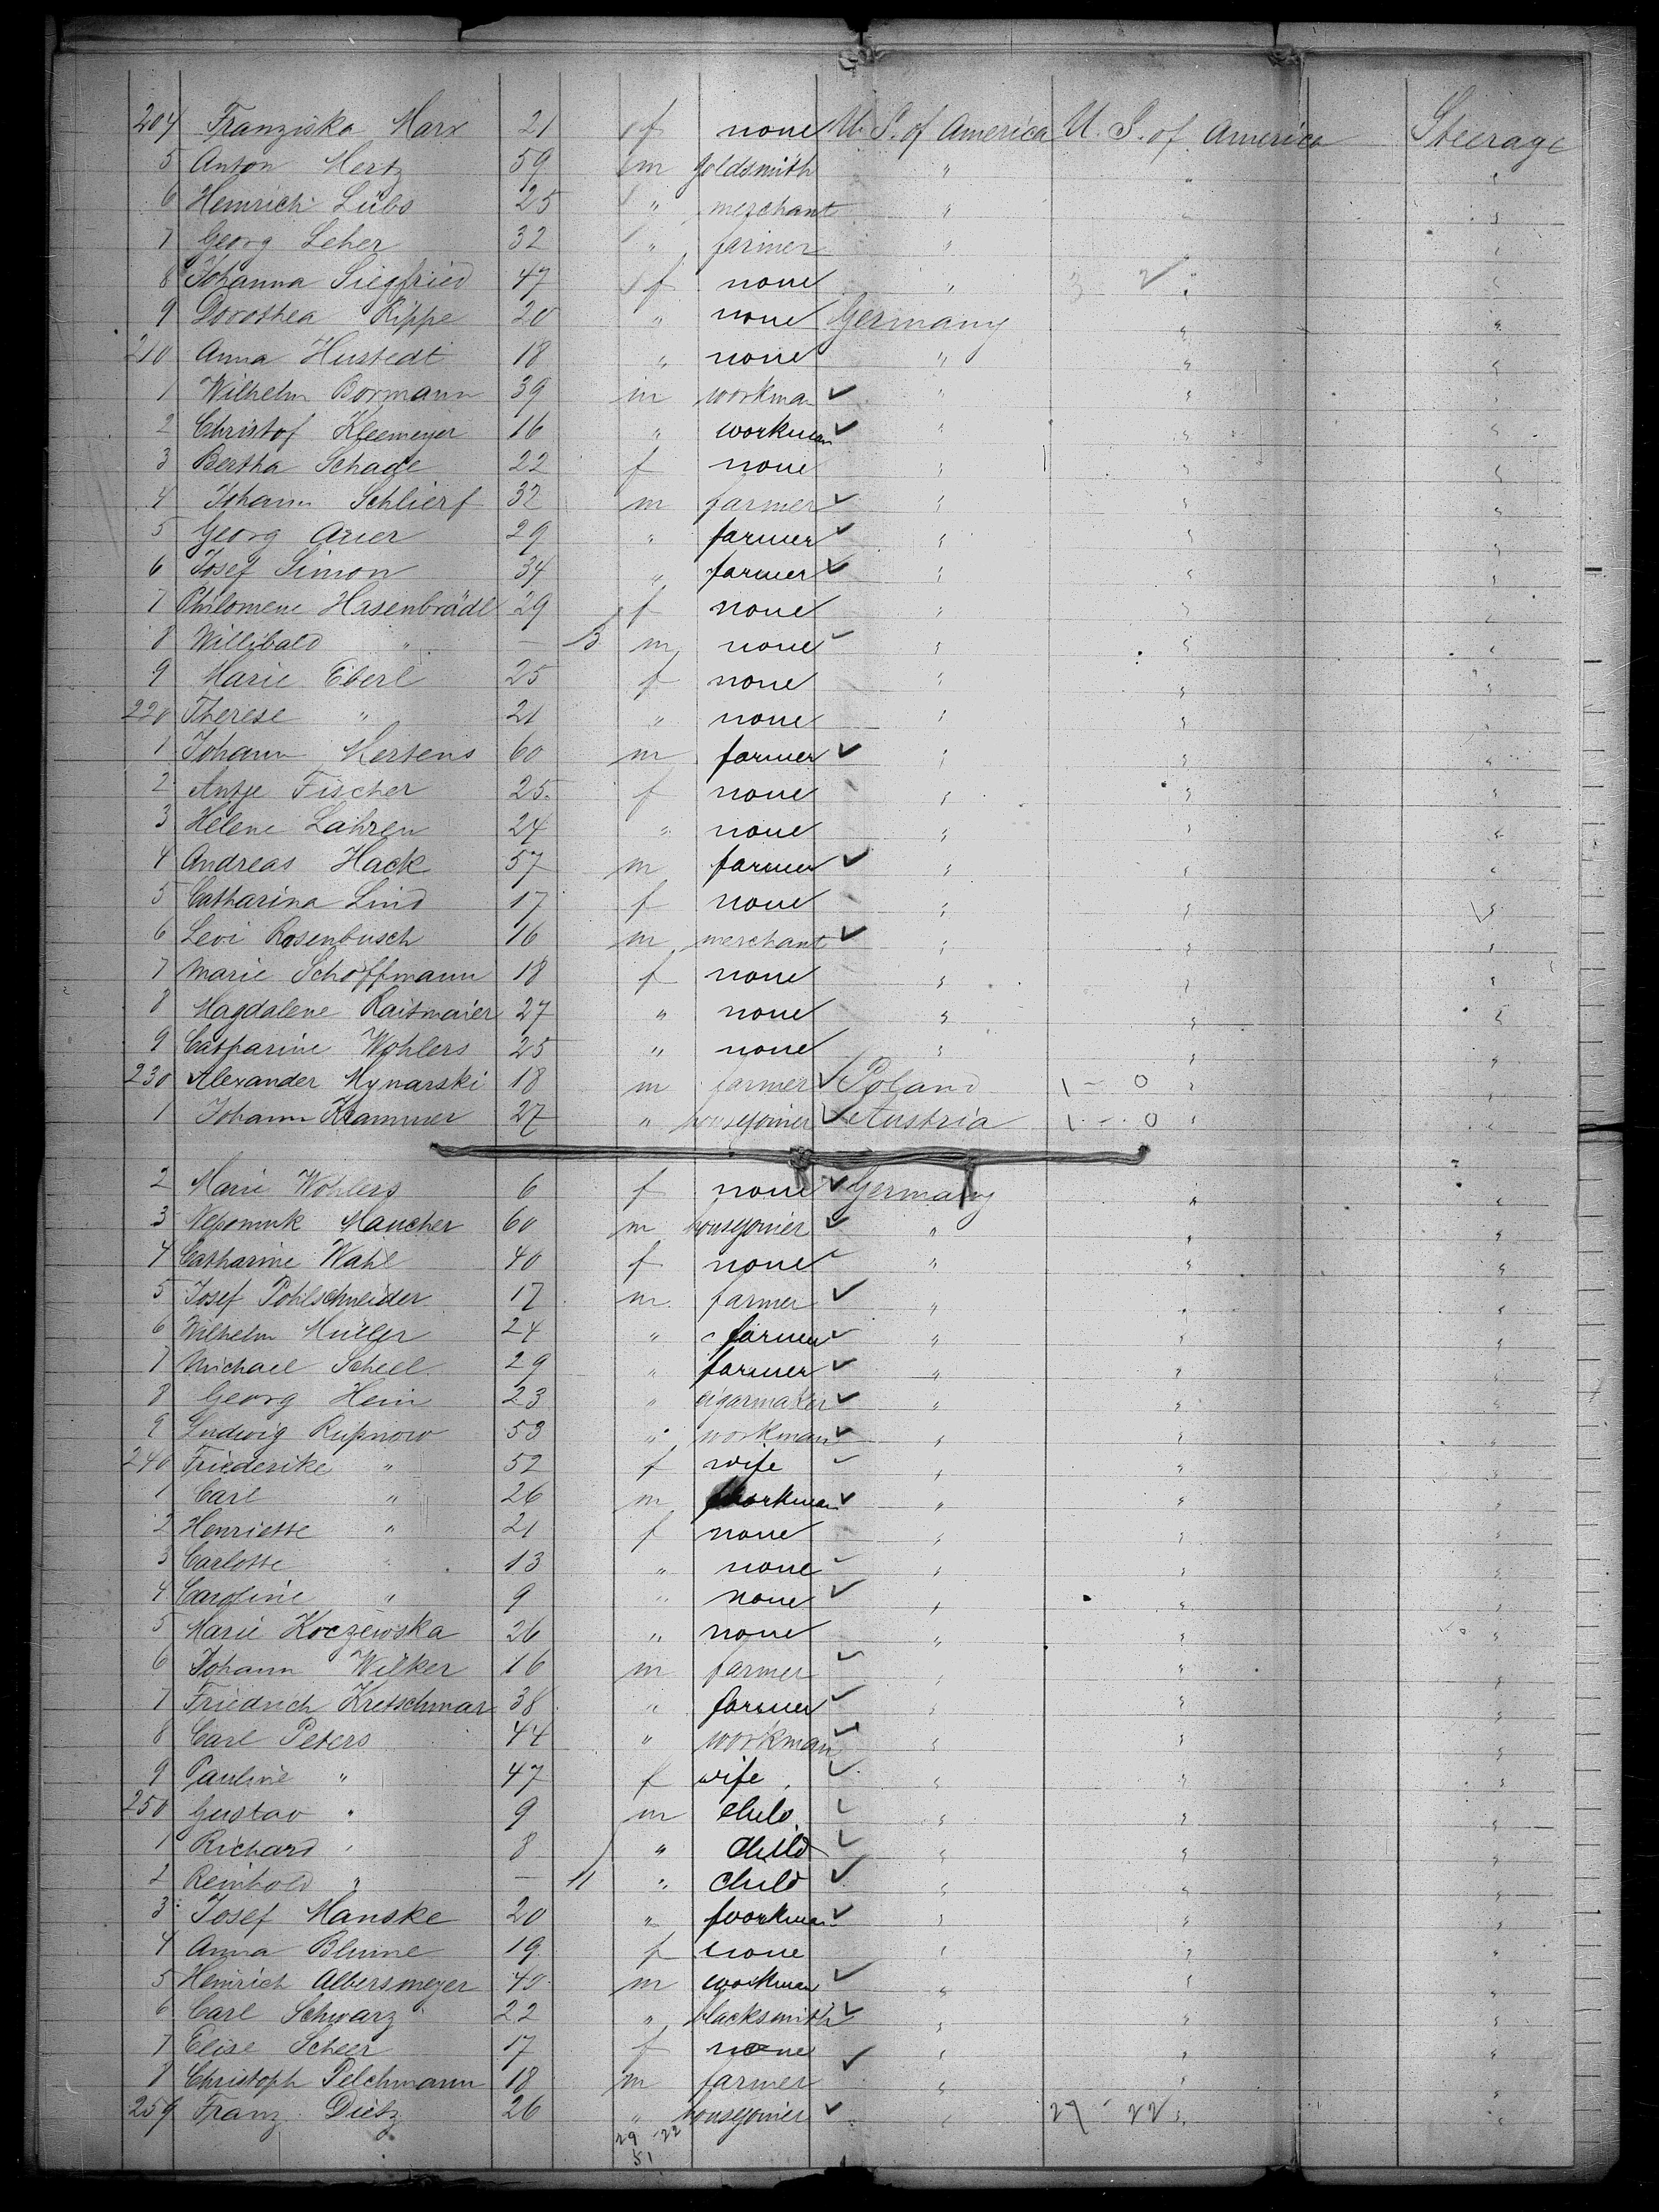 204 Franziska Marx 21 f none U. S. of America U. S. of America Steerage
5 Anton Mertz 59 m goldsmith " " "
6 Heinrich Lübs 25 " merchant " " "
7 Georg Leher 32 " farmer " " "
8 Johanna Siegfried 47 f none " 3 2 " "
9 Dorothea Rippe 20 " none Germany " "
210 Anna Hustedt 18 " none " " "
1 Wilhelm Bormann 39 m workman ✓ " " "
2 Christof Kleemeyer 16 " workman ✓ " " "
3 Bertha Schade 22 f none " " "
4 Johann Schlierf 32 m farmer ✓ " " "
5 Georg Arier 29 " farmer ✓ " " "
6 Josef Simon 34 " farmer ✓ " " "
7 Philomene Hasenbrädl 29 f none " " "
8 Willibald " — 3 m none ✓ " " "
9 Marie Eberl 25 f none " " "
220 Therese " 21 " none " " "
1 Johann Mertens 60 m farmer ✓ " " "
2 Antje Fischer 25 f none " " "
3 Helene Lahren 24 " none " " "
4 Andreas Hack 57 m farmer ✓ " " "
5 Catharina Lind 17 f none " " "
6 Levi Rosenbusch 16 m merchant ✓ " " "
7 Marie Schoffmann 18 f none " " "
8 Magdalene Raitmaier 27 " none " " "
9 Catharine Wohlers 25 " none " " "
230 Alexander Mynarski 18 m farmer ✓ Poland 1 - 0 " "
1 Johann Krammer 27 " housejoiner ✓ Austria 1 - 0 " "
2 Marie Wohlers 6 f none ✓ Germany " "
3 Nepomuk Maucher 60 m housejoiner ✓ " " "
4 Catharine Wahl 40 f none ✓ " " "
5 Josef Pohlschneider 17 m farmer ✓ " " "
6 Wilhelm Müller 24 " farmer ✓ " " "
7 Michael Scheel 29 " farmer ✓ " " "
8 Georg Hein 23 " cigarmaker ✓ " " "
9 Ludwig Rupnow 53 " workman ✓ " " "
240 Friederike " 52 f wife ✓ " " "
1 Carl " 26 m workman ✓ " " "
2 Henriette " 21 f none " " "
3 Carlotte " 13 " none ✓ " " "
4 Caroline " 9 " none ✓ " " "
5 Marie Koczewska 26 " none " " "
6 Johann Wilker 16 m farmer ✓ " " "
7 Friedrich Kretschmar 38 " farmer ✓ " " "
8 Carl Peters 44 " workman ✓ " " "
9 Pauline " 47 f wife ✓ " " "
250 Gustav " 9 m child ✓ " " "
1 Richard " 8 " child ✓ " " "
2 Reinhold " — 11 " child ✓ " " "
3 Josef Manske 20 " workman ✓ " " "
4 Anna Blume 19 f none " " "
5 Heinrich Albersmeyer 40 m workman ✓ " " "
6 Carl Schwarz 22 " blacksmith ✓ " " "
7 Elise Scheer 17 f none " " "
8 Christoph Pelchmann 18 m farmer ✓ " " "
259 Franz Dietz 26 " housejoiner ✓ " 27 - 22 " "
29 - 22
51